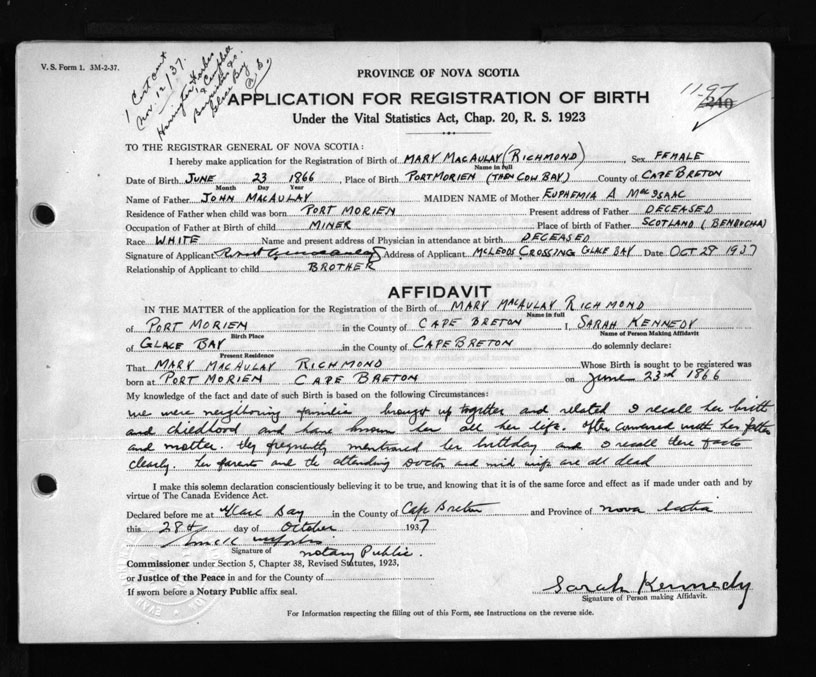 V. S. Form 1. 3M-2-37.
1 Cert sent
Nov. 12/37.
Glace Bay
PROVINCE OF NOVA SCOTIA
11-97
240
APPLICATION FOR REGISTRATION OF BIRTH
Under the Vital Statistics Act, Chap. 20, R. S. 1923
TO THE REGISTRAR GENERAL OF NOVA SCOTIA:
I hereby make application for the Registration of Birth of MARY MACAULAY (RICHMOND), Sex FEMALE
Name in full
Date of Birth JUNE 23 1866, Place of Birth PORT MORIEN (THEN COW BAY) County of CAPE BRETON
Month Day Year
Name of Father JOHN MACAULAY MAIDEN NAME of Mother EUPHEMIA A MACISAAC
Residence of Father when child was born PORT MORIEN Present address of Father DECEASED
Occupation of Father at Birth of child MINER Place of birth of Father SCOTLAND (BENBUCHA)
Race WHITE Name and present address of Physician in attendance at birth DECEASED
Signature of Applicant Address of Applicant MCLEODS CROSSING GLACE BAY Date OCT 28 1937
Relationship of Applicant to child BROTHER
AFFIDAVIT
IN THE MATTER of the application for the Registration of the Birth of MARY MACAULAY RICHMOND
Name in full
of PORT MORIEN in the County of CAPE BRETON I, SARAH KENNEDY
Birth Place Name of Person Making Affidavit
of GLACE BAY in the County of CAPE BRETON do solemnly declare:
Present Residence
That MARY MACAULAY RICHMOND Whose Birth is sought to be registered was
born at PORT MORIEN CAPE BRETON on June 23rd 1866
My knowledge of the fact and date of such Birth is based on the following Circumstances:
We were neighboring families brought up together and related I recall her birth
and childhood and have known her all her life. Often conversed with her father
and mother. They frequently mentioned her birthday and I recall these facts
clearly. Her parents and the attending Doctor and mid wife are all dead
I make this solemn declaration conscientiously believing it to be true, and knowing that it is of the same force and effect as if made under oath and by
virtue of The Canada Evidence Act.
Declared before me at Glace Bay in the County of Cape Breton and Province of Nova Scotia
this 28th day of October 1937
Signature of Notary Public.
Commissioner under Section 5, Chapter 38, Revised Statutes, 1923,
or Justice of the Peace in and for the County of
If sworn before a Notary Public affix seal.
Sarah Kennedy
Signature of Person making Affidavit.
For Information respecting the filling out of this Form, see Instructions on the reverse side.